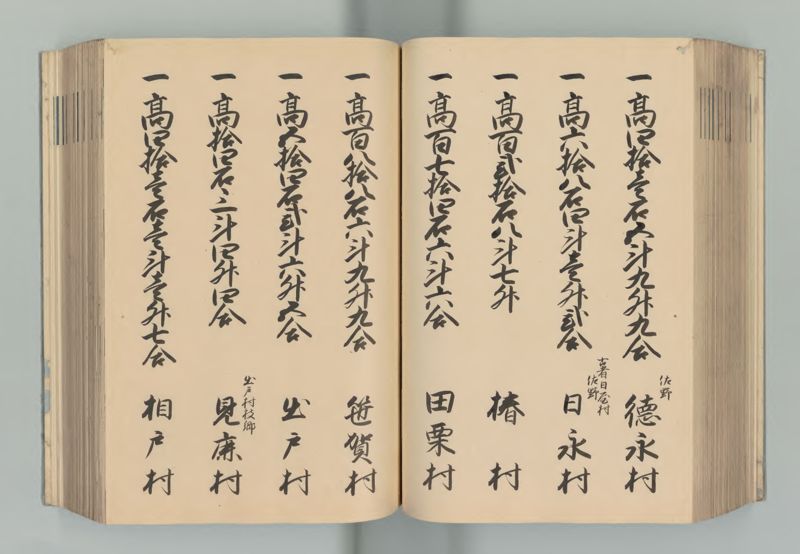 一高四拾壱石五斗九升九合 佐野 徳永村
一高六拾八石四斗壱升弐合 古者日屋村 佐野 日永村
一高百弐拾石八斗七升 椿村
一高百七拾四石六斗六合 田栗村
一高百八拾八石六斗九升九合 笹賀村
一高五拾四石弐斗六升五合 出戸村
一高拾四石三斗四升四合 出戸村枝郷 見麻村
一高四拾壱石壱斗壱升七合 相戸村